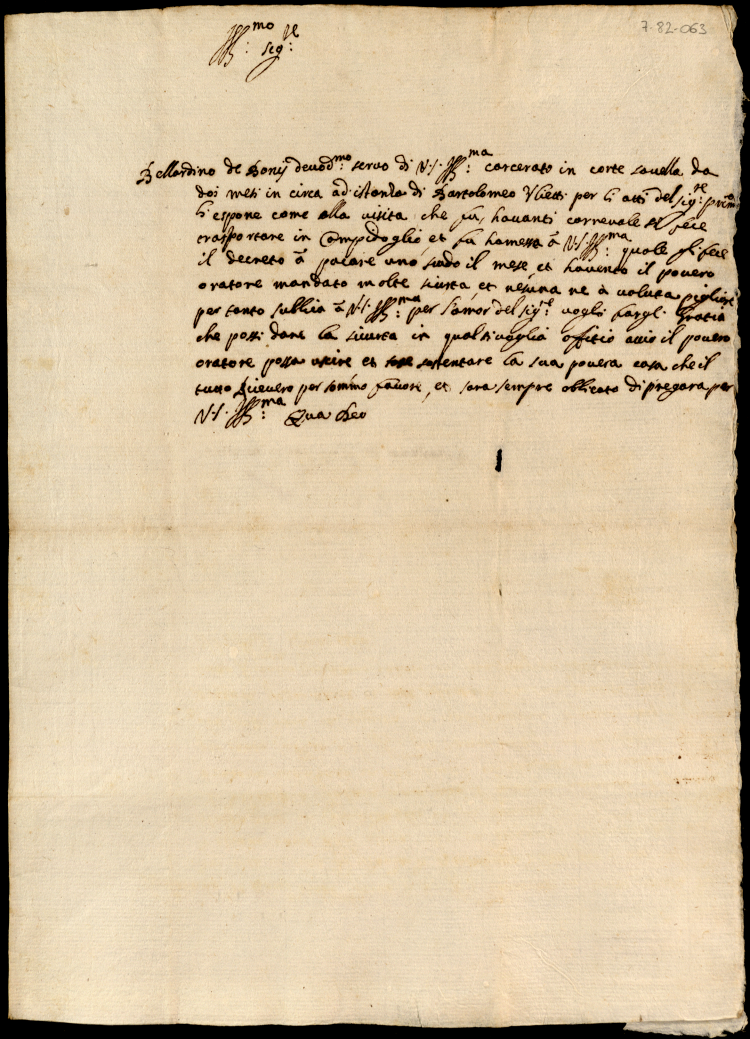 7-82-063
Ill:mo Sig:re
Bellardino de Bonij deuod:mo seruo di V.S. Ill:ma carcerato in corte sauella da
doi mesi in circa ad istanza di Bartolomeo per li atti del Sig:re
li espone come alla uisita che fù hauanti carneuale si fece
trasportare in Campidoglio et fu hamessa à V.S. Ill:ma quale fece
il decreto à pacare uno scudo il mese et hauento il pouero
oratore mandato molte siurtà et nesuna ne à voluta pigliare
per tanto sublica à V.S. Ill:ma per l'amor del Sig:re vogli fargli Gratia
che possi dare la siurta in qual siuoglia offitio aciò il pouero
oratore possa uscire et sostentare la sua pouera casa che il
tutto riceuero per sommo fauore, et sara sempre oblicato di pregara per
V.S. Ill:ma Qua Deo